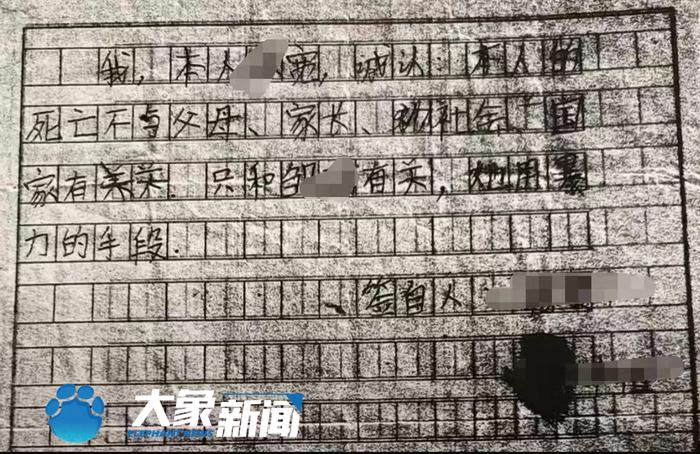 我，本人宽，喊认：本人的
死亡不与父母、家长、和社会、国
家有关关. 只和邹有关，她用暴
力的手段.
签自人
大象新闻
ELEPHANT NEWS